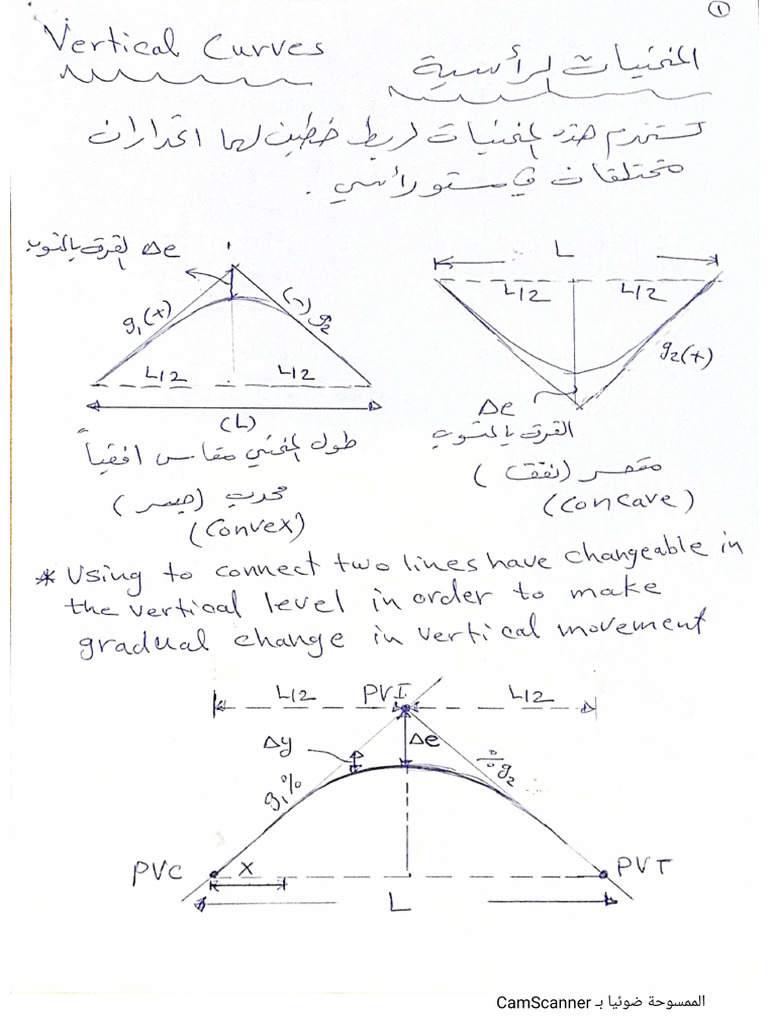 ①
Vertical Curves
المنحنيات الرأسية
تستخدم هذه المنحنيات لربط خطين لهما انحدارات
مختلفات في مستو رأسي .
الفرق بالمنسوب Δe
g₁(+)
(-)g₂
L/2
L/2
(L)
طول المنحني مقاس افقياً
محدب (جسر)
(Convex)
L
L/2
L/2
g₂(+)
Δe
الفرق بالمنسوب
مقعر (نفق)
(Concave)
* Using to connect two lines have changeable in
the vertical level in order to make
gradual change in vertical movement
L/2
PVI
L/2
Δy
Δe
g₁%
%g₂
PVC
x
PVT
L
الممسوحة ضوئيا بـ CamScanner